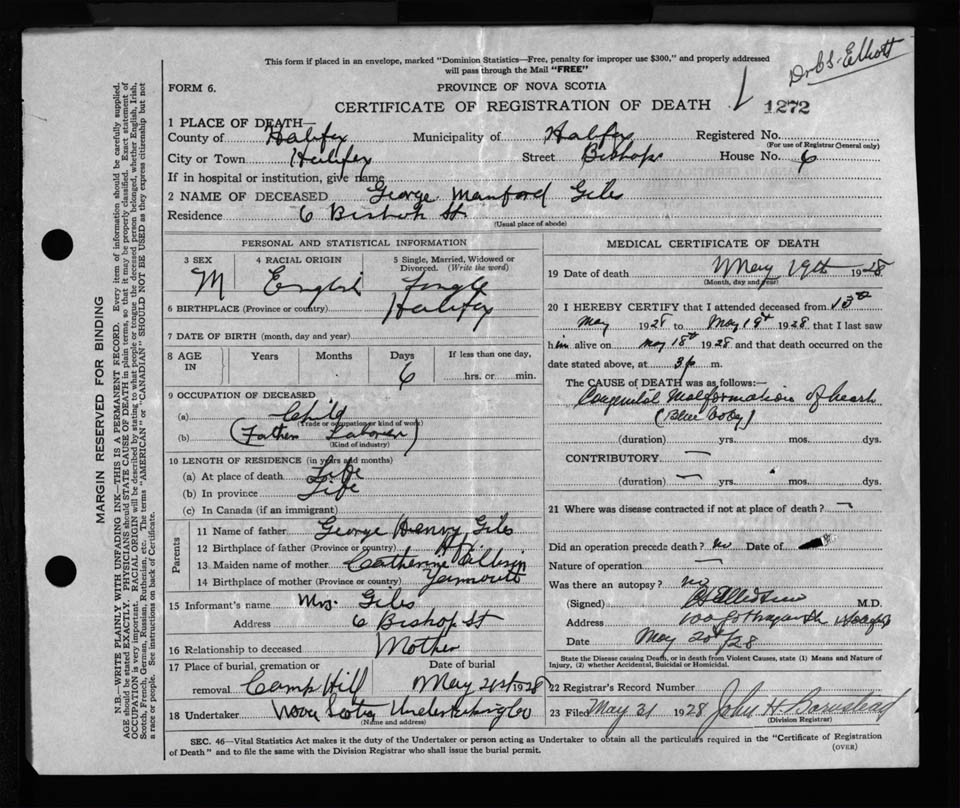 This form if placed in an envelope, marked "Dominion Statistics—Free, penalty for improper use $300," and properly addressed
will pass through the Mail "FREE"
Elliott
FORM 6.
PROVINCE OF NOVA SCOTIA
CERTIFICATE OF REGISTRATION OF DEATH
1272
1 PLACE OF DEATH—
County of Halifax Municipality of Halifax Registered No.
(For use of Registrar General only)
City or Town Halifax Street Bishop House No. 6
If in hospital or institution, give name
2 NAME OF DECEASED George Manford Giles
Residence 6 Bishop St.
(Usual place of abode)
PERSONAL AND STATISTICAL INFORMATION
3 SEX 4 RACIAL ORIGIN 5 Single, Married, Widowed or Divorced. (Write the word)
M English Single
6 BIRTHPLACE (Province or country) Halifax
7 DATE OF BIRTH (month, day and year)
8 AGE IN Years Months Days If less than one day,
6 hrs. or min.
9 OCCUPATION OF DECEASED
(a) Child
(Trade or occupation or kind of work)
(b) (Father Laborer)
(Kind of industry)
10 LENGTH OF RESIDENCE (in years and months)
(a) At place of death Life
(b) In province Life
(c) In Canada (if an immigrant)
Parents
11 Name of father George Henry Giles
12 Birthplace of father (Province or country)
13 Maiden name of mother Catherine
14 Birthplace of mother (Province or country) Yarmouth
15 Informant's name Mrs. Giles
Address 6 Bishop St
16 Relationship to deceased Mother
17 Place of burial, cremation or Date of burial
removal Camp Hill May 21st 1928
18 Undertaker Nova Scotia Undertaking Co
(Name and address)
MEDICAL CERTIFICATE OF DEATH
19 Date of death May 19th 1928
(Month, day and year)
20 I HEREBY CERTIFY that I attended deceased from 13th
May 1928 to May 19th 1928 that I last saw
him alive on May 18th 1928 and that death occurred on the
date stated above, at 3 p m.
The CAUSE OF DEATH was as follows:
Congenital Malformation of heart
(Blue Baby)
(duration) yrs. mos. dys.
CONTRIBUTORY —
(duration) — yrs. mos. dys.
21 Where was disease contracted if not at place of death? —
Did an operation precede death? no Date of
Nature of operation —
Was there an autopsy? no
(Signed) M.D.
Address Halifax
Date May 20th/28
State the Disease causing Death, or in death from Violent Causes, state (1) Means and Nature of
Injury, (2) whether Accidental, Suicidal or Homicidal.
22 Registrar's Record Number
23 Filed May 21 1928 John H Barnstead
(Division Registrar)
SEC. 46—Vital Statistics Act makes it the duty of the Undertaker or person acting as Undertaker to obtain all the particulars required in the "Certificate of Registration
of Death" and to file the same with the Division Registrar who shall issue the burial permit.
(OVER)
MARGIN RESERVED FOR BINDING
N.B.—WRITE PLAINLY WITH UNFADING INK—THIS IS A PERMANENT RECORD. Every item of information should be carefully supplied.
AGE should be stated EXACTLY. PHYSICIANS should STATE CAUSE OF DEATH in plain terms, so that it may be properly classified. Exact statement of
OCCUPATION is very important. RACIAL ORIGIN will be described by stating to what people or tongue the deceased person belonged, whether English, Irish,
Scotch, French, German, Russian, Ruthenian, etc. The terms "AMERICAN" or "CANADIAN" SHOULD NOT BE USED as they express citizenship but not
a race or people. See instructions on back of Certificate.